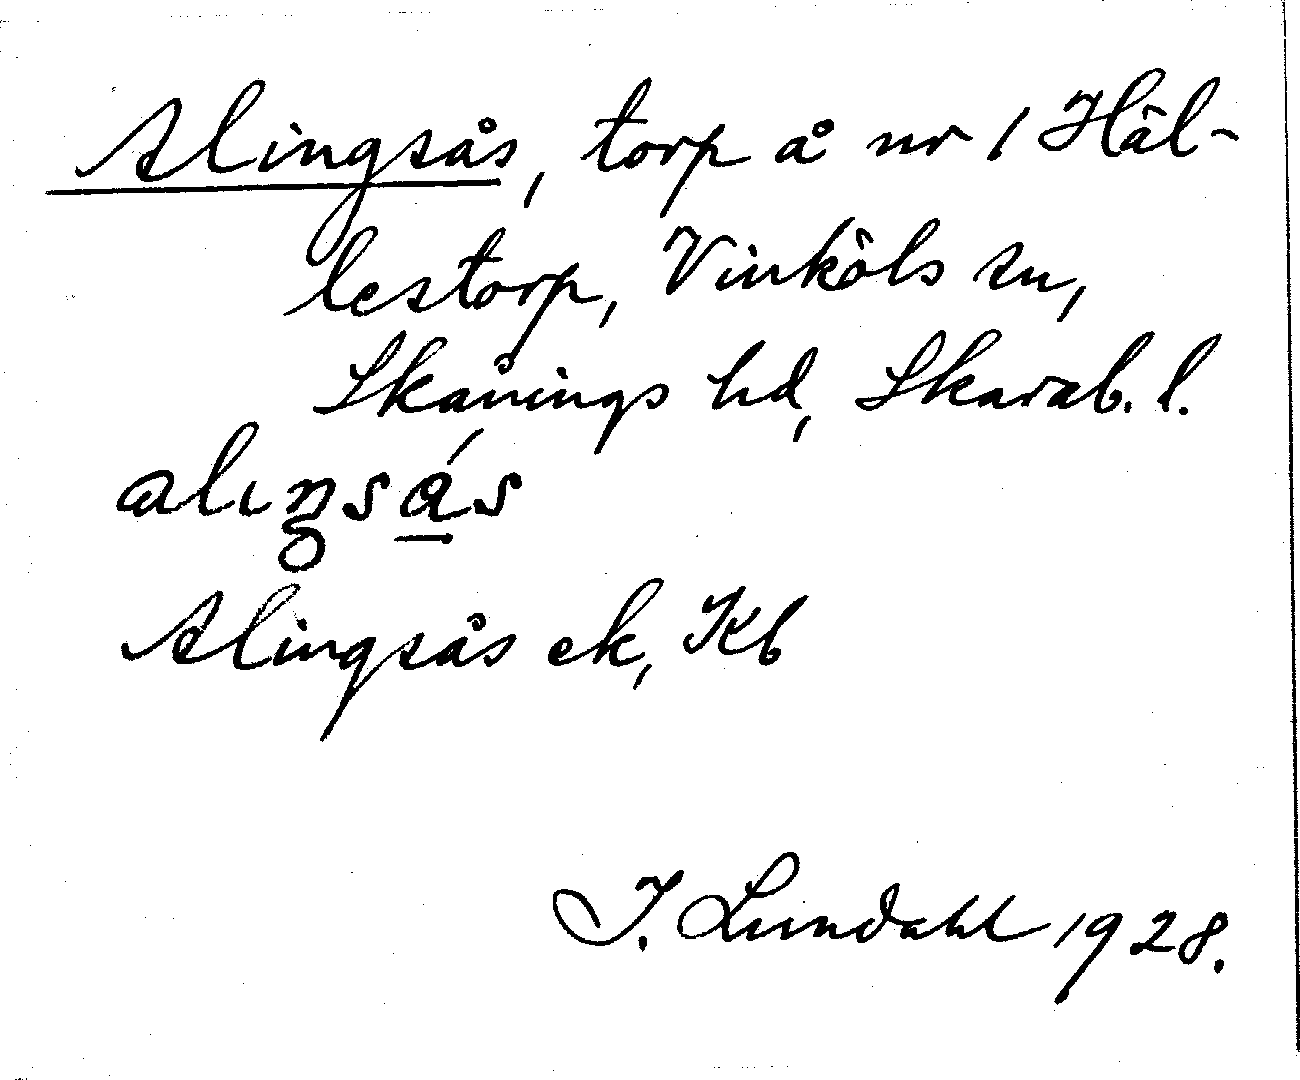 Alingsås, torp å nr 1 Häl-
lestorp, Vinköls sn,
Skånings hd, Skarab. l.
alıŋsás
Alingsås ek, Kb
I. Lundahl 1928.